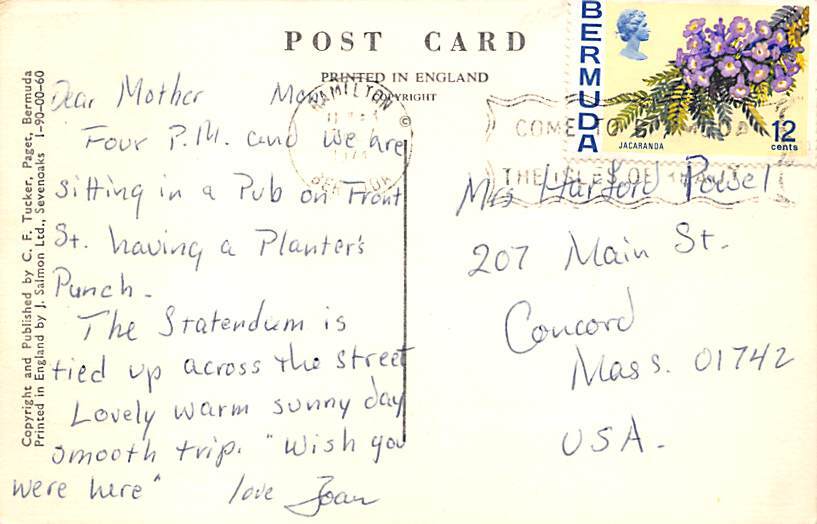 POST CARD
PRINTED IN ENGLAND
COPYRIGHT
©
Copyright and Published by C. F. Tucker, Paget, Bermuda
Printed in England by J. Salmon Ltd., Sevenoaks 1-90-00-60
Dear Mother
Four P.M. and we are
sitting in a Pub on Front
St. having a Planter's
Punch.
The Statendum is
tied up across the street
Lovely warm sunny day
smooth trip. "Wish you
were here"
love Joan
BERMUDA
JACARANDA
12
cents
HAMILTON
COME TO
THE ISLES OF
Mrs Harford Powel
207 Main St.
Concord
Mass. 01742
USA.